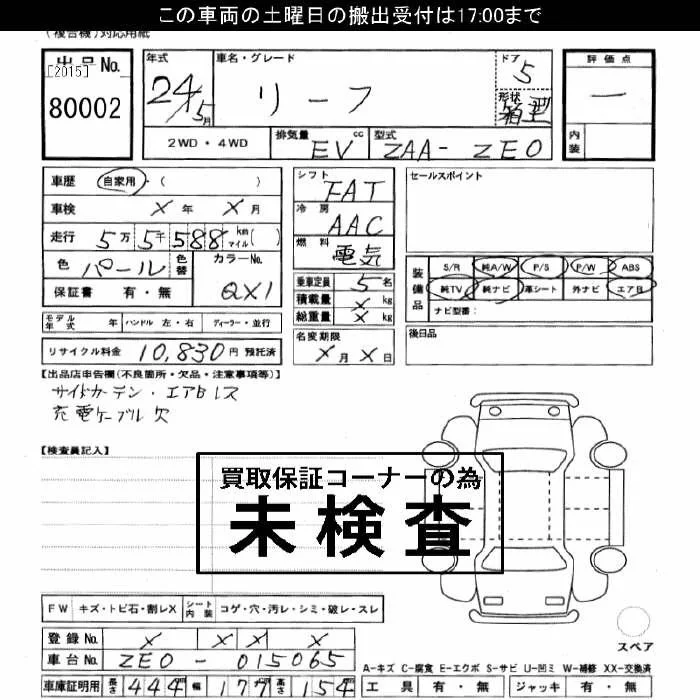 この車両の土曜日の搬出受付は17:00まで
(複合機)対応用紙
出品No.
[2015]
80002
年式
24/5月
車名・グレード
リーフ
ドア
5
形状
箱型
評価点
—
内装
2WD・4WD
排気量 cc
EV
型式
ZAA-ZE0
車歴 自家用・( )
車検 X 年 X 月
走行 5万5千588 km マイル( )
色 パール 色替 カラーNo. QX1
保証書 有・無
モデル年式 年 ハンドル 左・右 ディーラー・並行
リサイクル料金 10,830円 預託済
シフト FAT
冷房 AAC
燃料 電気
乗車定員 5名
積載量 X kg
総重量 X kg
名変期限
X月X日
セールスポイント
装備品
S/R 純A/W P/S P/W ABS
純TV 純ナビ 革シート 外ナビ エアB
ナビ型番:
後日品
【出品店申告欄(不良箇所・欠品・注意事項等)】
サイドカーテン・エアBレス
充電ケーブル欠
【検査員記入】
買取保証コーナーの為
未検査
FW キズ・トビ石・割レX シート内装 コゲ・穴・汚レ・シミ・破レ・スレ
登録No. X X X X
車台No. ZE0-015065
車庫証明用 長さ 444cm 幅 177cm 高さ 154cm
スペア
A-キズ C-腐食 E-エクボ S-サビ U-凹ミ W-補修 XX-交換済
工具 有・無 ジャッキ 有・無